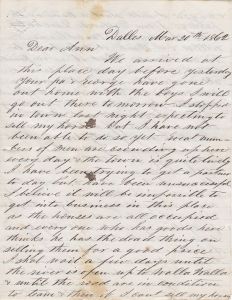 Dalles Mar 20th 1862
Dear Ann
We arrived at
this place day before yesterday
Your pa & George have gone
out home with the boys I will
go out there tomorrow I stopped
in town last night expecting to
sell my horse but I have not
been able to do so yet great num
bers of men are crowding up here
every day & the town is quite lively
I have been trying to get a partner
to day but have been unsuccessful
I believe it will be impossible to
get into business in this place
as the houses are all occupied
and every one who has goods here
thinks he has the dead thing on
selling them for a good price
I shal wait a few days until
the river is open up to Walla Walla
& until the roads are in condition
to & then if I cant sell my horse